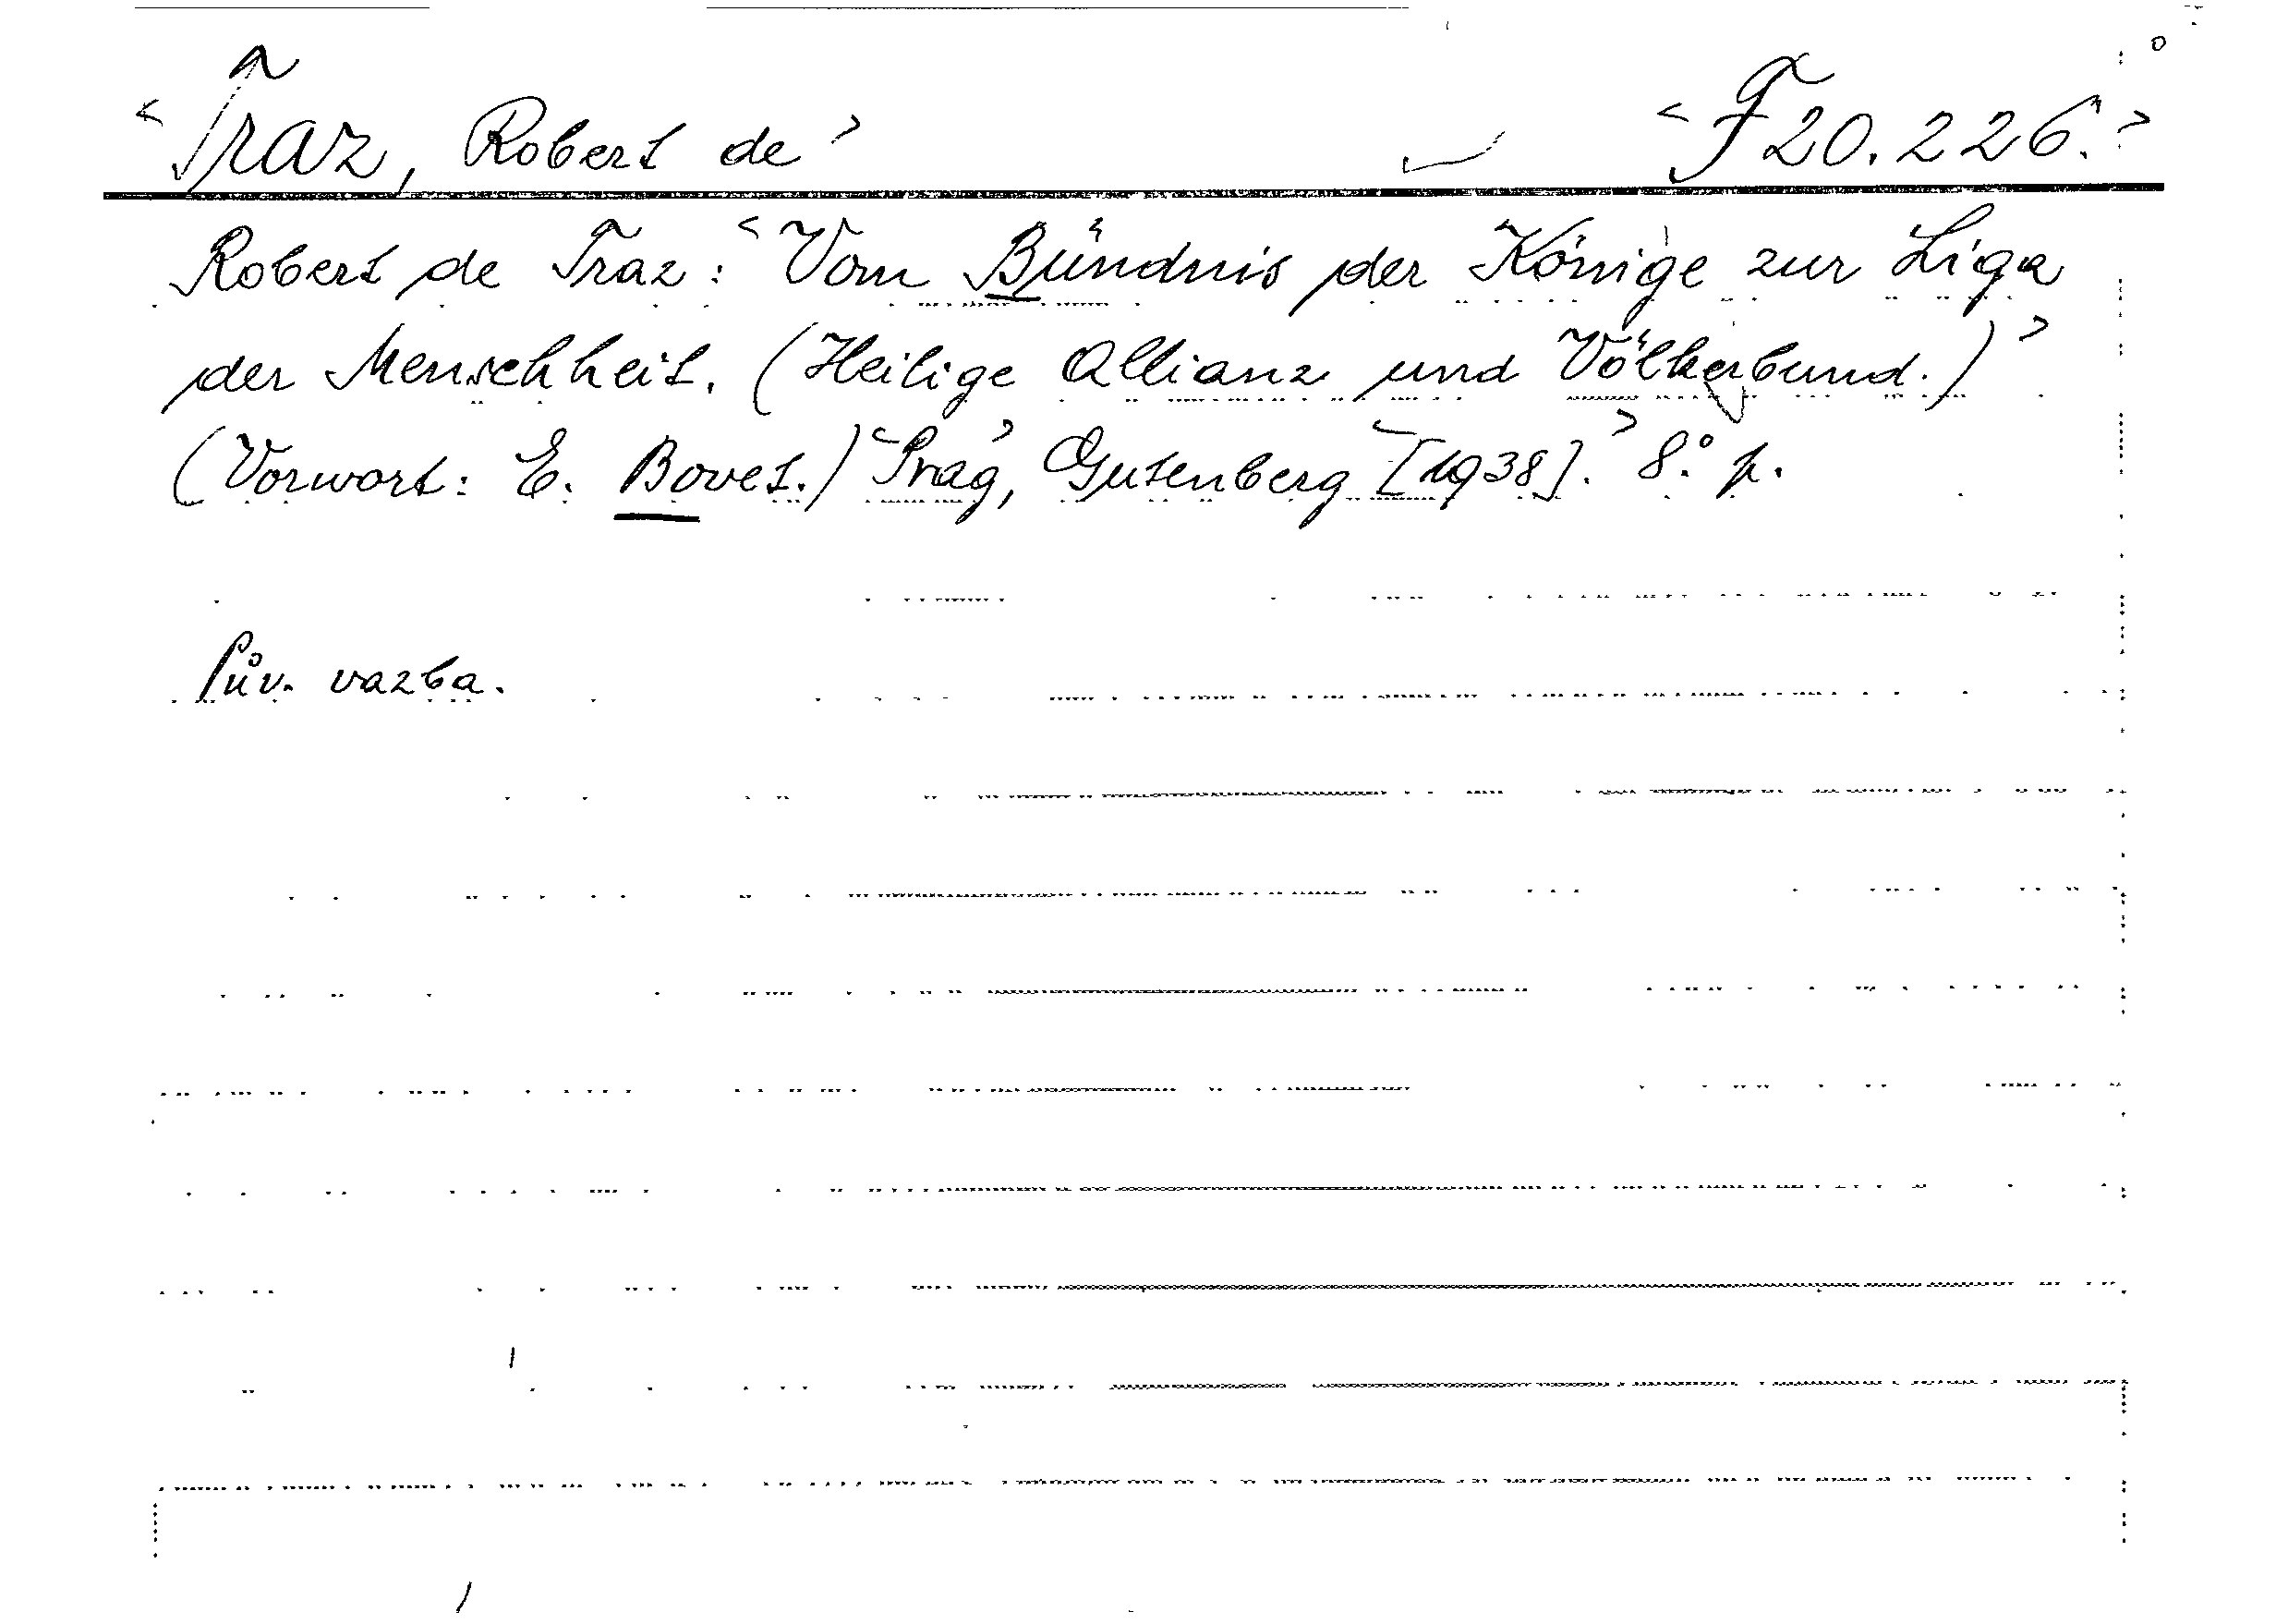 <Traz, Robert de> <F 20.226.>
Robert de Traz: <Vom Bündnis der Könige zur Liga
der Menschheit. (Heilige Allianz und Völkerbund.)>
(Vorwort: E. Bovet.) <Prag>, Gutenberg <[1938].> 8.° p.
Pův. vazba.